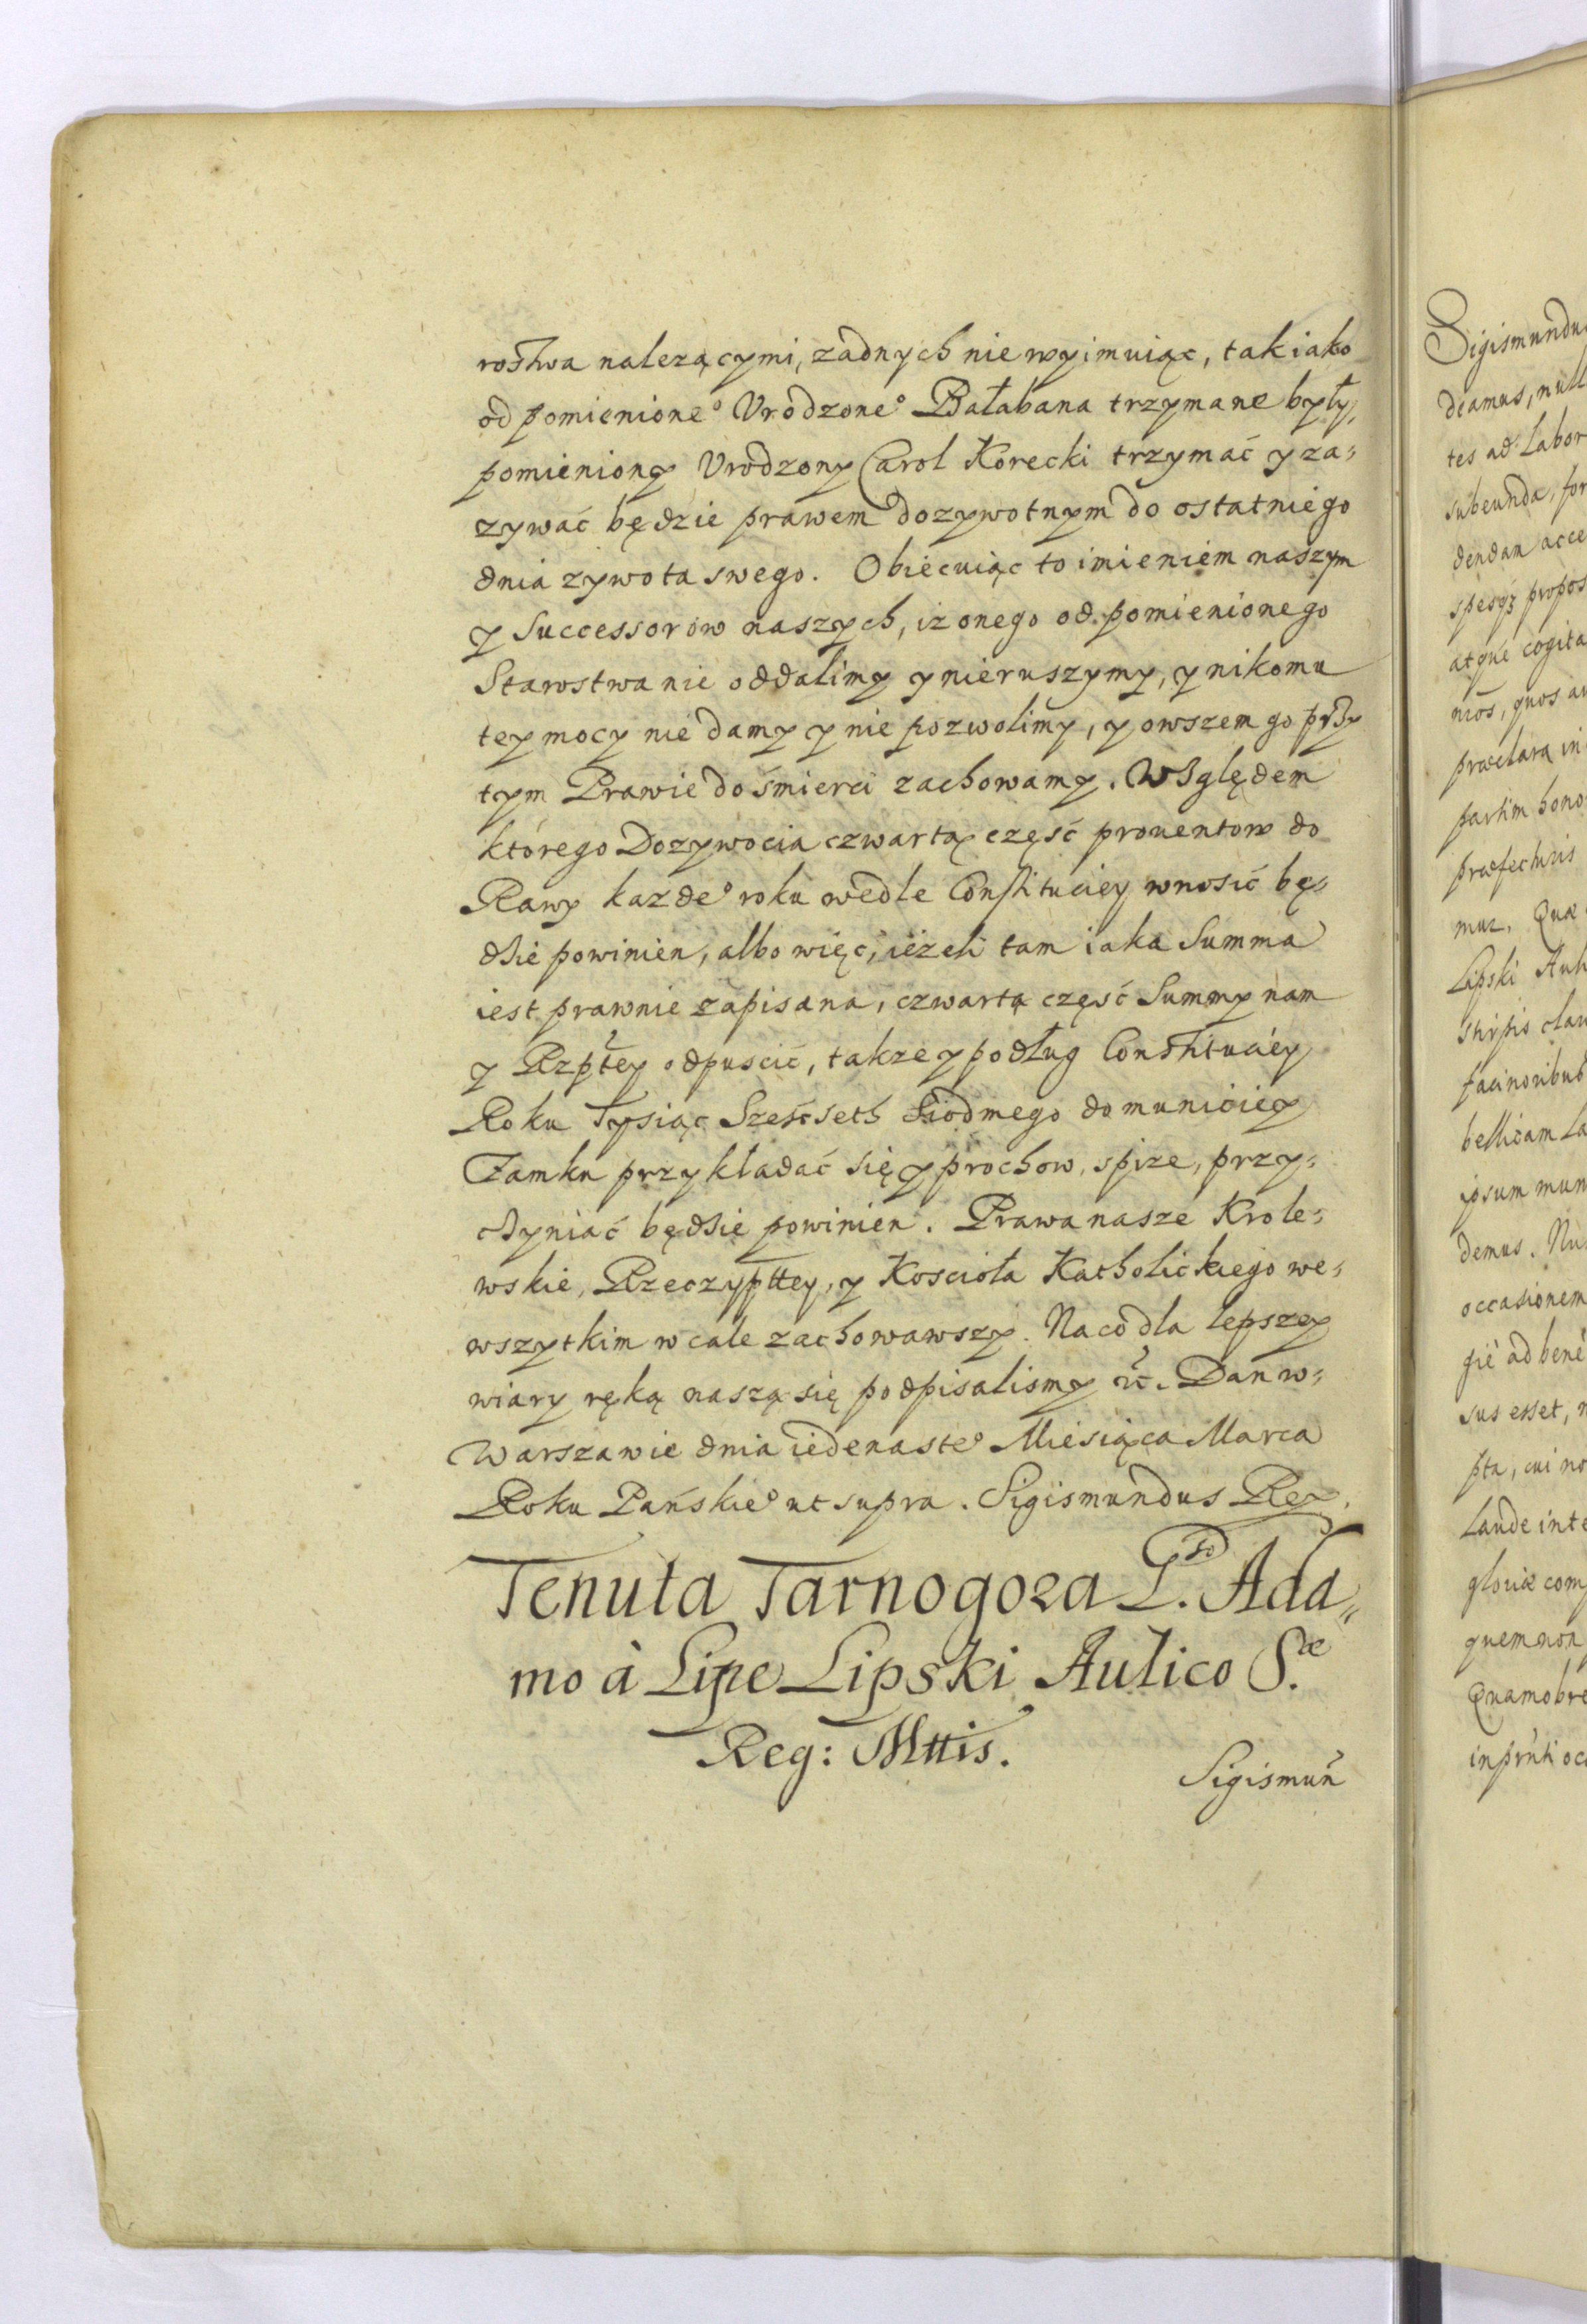 rostwa nalezącymi, zadnych nie wyimuiąc, tak iako
od pomienione⁰ Vrodzone⁰ Bałabana trzymane były,
pomieniony Vrodzony Carol Korecki trzymać y za-
zywać będzie prawem dozywotnym do ostatniego
dnia zywota swego. Obiecuiąc to imieniem naszym
y Successorow naszych, iz onego od pomienionego
Starostwa nie oddalimy y nieruszymy, y nikomu
tey mocy nie damy y nie pozwolimy, y owszem go przy
tym Prawie do śmierci zachowamy. Względem
którego Dozywocia czwartą część prouentow do
Rawy kazde⁰ roku wedle Constituciey wnosić bę-
dzie powinien, albo więc, ieżeli tam iaka Summa
iest prawnie zapisana, czwartą część Summy nam
y Rzptey odpuscić, takze y podług Constituciey
Roku Tysiąc Sześcseth Siodmego do municiey
Zamku przykładać się y prochow, spize, przy-
czyniać będzie powinien. Prawa nasze Krole-
wskie, Rzeczypttey, y Kosciola Katholickiego we-
wszytkim w cale zachowawszy. Na co dla lepszey
wiary ręką naszą się podpisalismy etc. Dan w-
Warszawie dnia iedenaste⁰ Miesiąca Marca
Roku Pańskie⁰ ut supra. Sigismundus Rex.
Tenuta Tarnogora G.so Ada-
mo à Lipe Lipski Aulico S.ae
Reg: Mttis.
Sigismuñ
Sigismundu
deamus, null
tes ad labor
subeunda, for
dendam acce
spesq3 propos
atque cogita
nios, quos au
præclara in
partim hono
præfecturis
mur. Quæ
Lipski Auli
stirpis clar
facinoribus
bellicam la
ipsum mun
demus. Nu
occasionem
gie ad bene
sus esset, n
pta, cui no
Laude inte
gloriæ com
quem non
Quamobre
inprnti occ